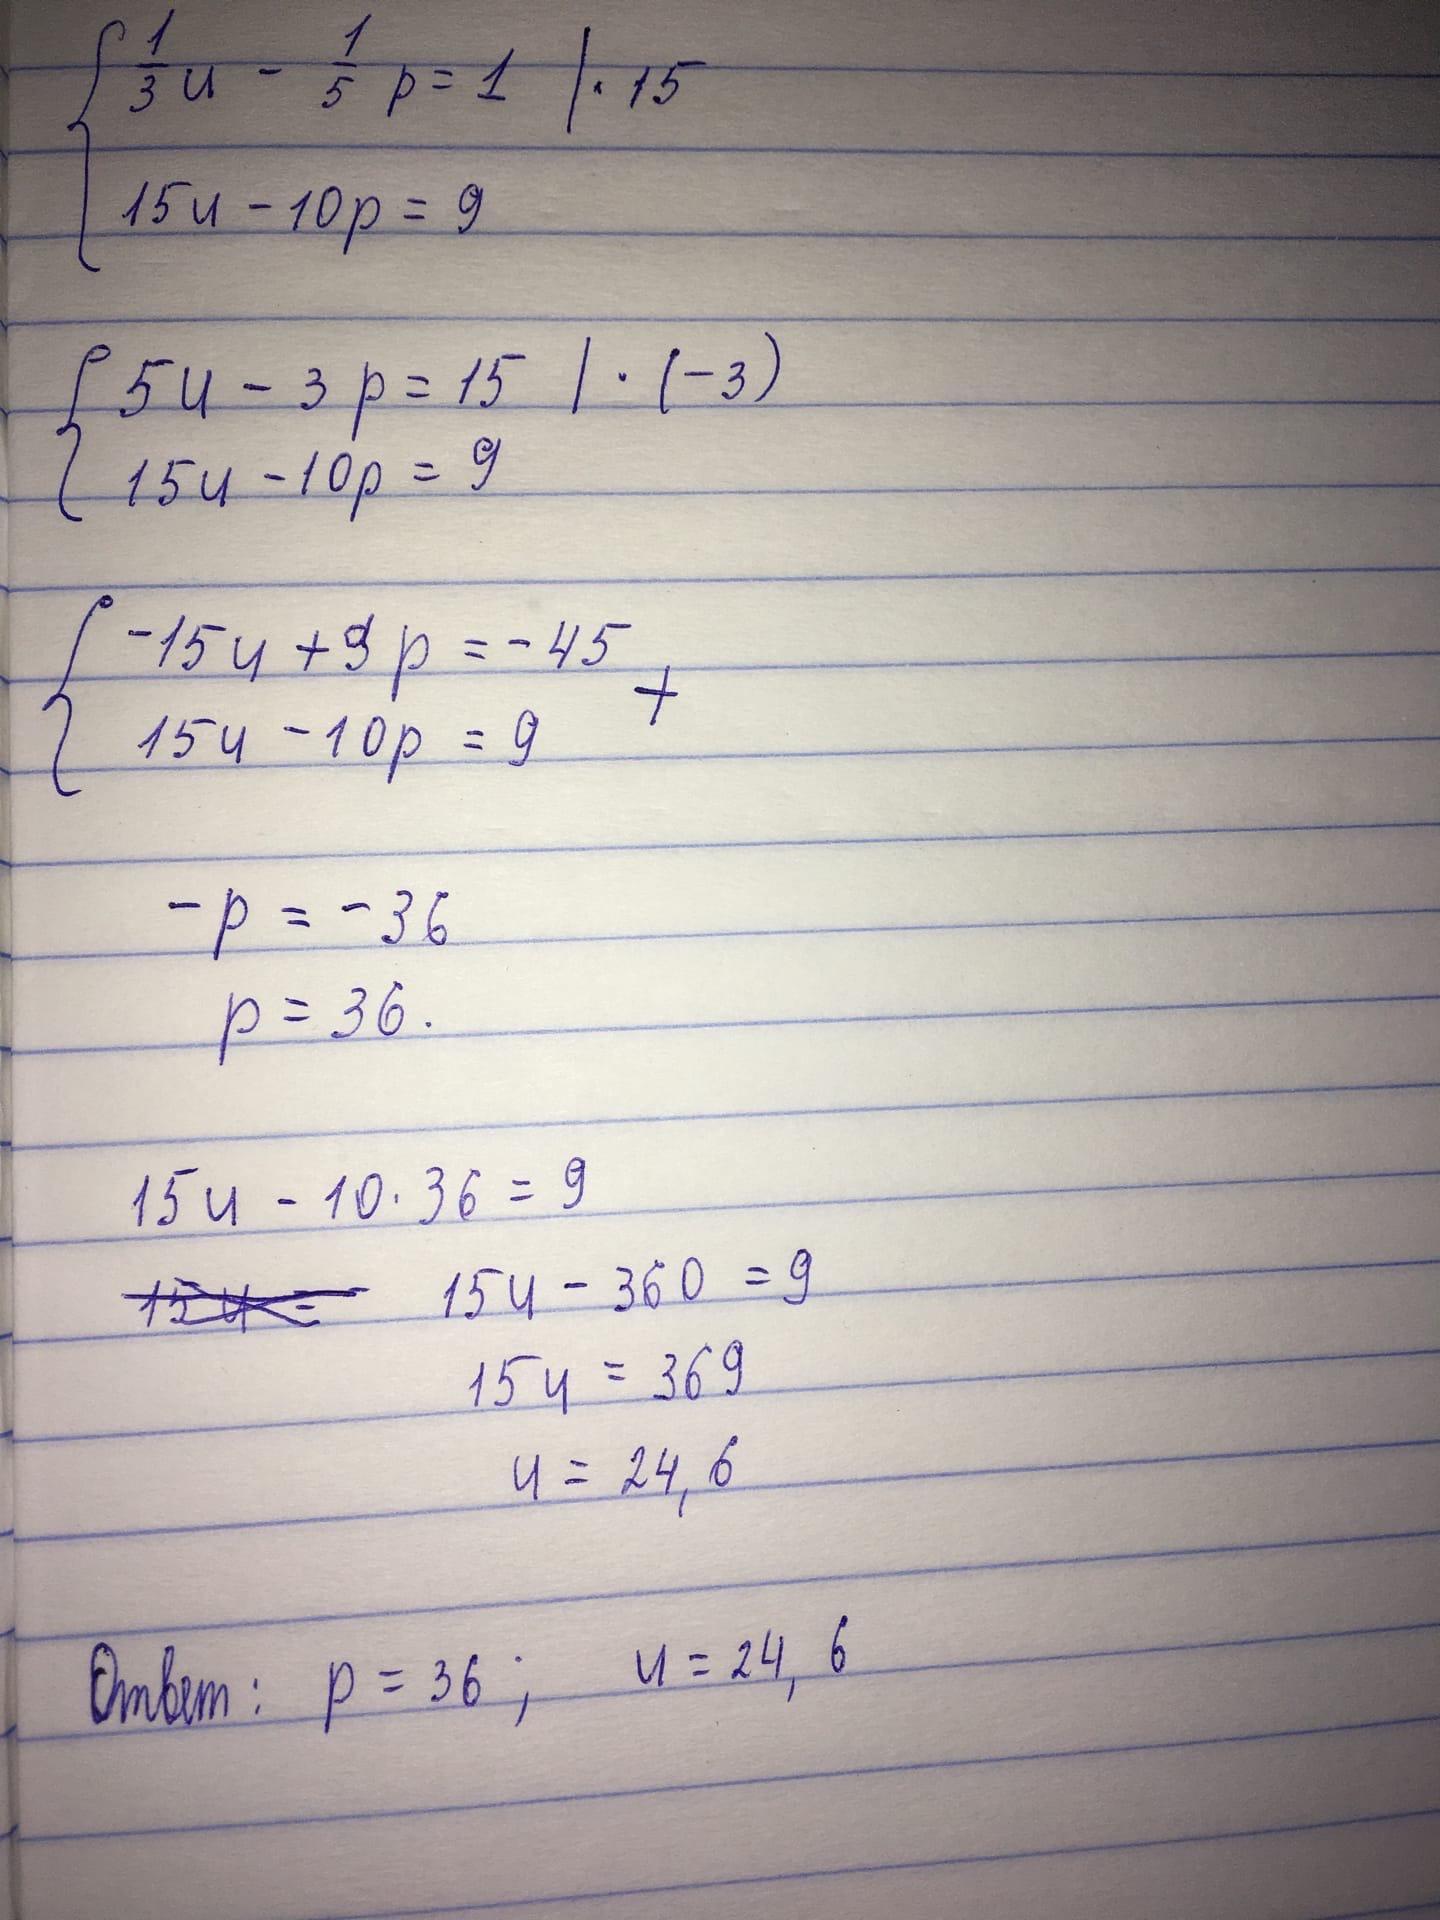 1/3 u - 1/5 p = 1 | · 15
15u - 10p = 9
5u - 3p = 15 | · (-3)
15u - 10p = 9
-15u + 9p = -45
+
15u - 10p = 9
-p = -36
p = 36.
15u - 10 · 36 = 9
15u = 15u - 360 = 9
15u = 369
u = 24,6
Ответ: p = 36; u = 24,6